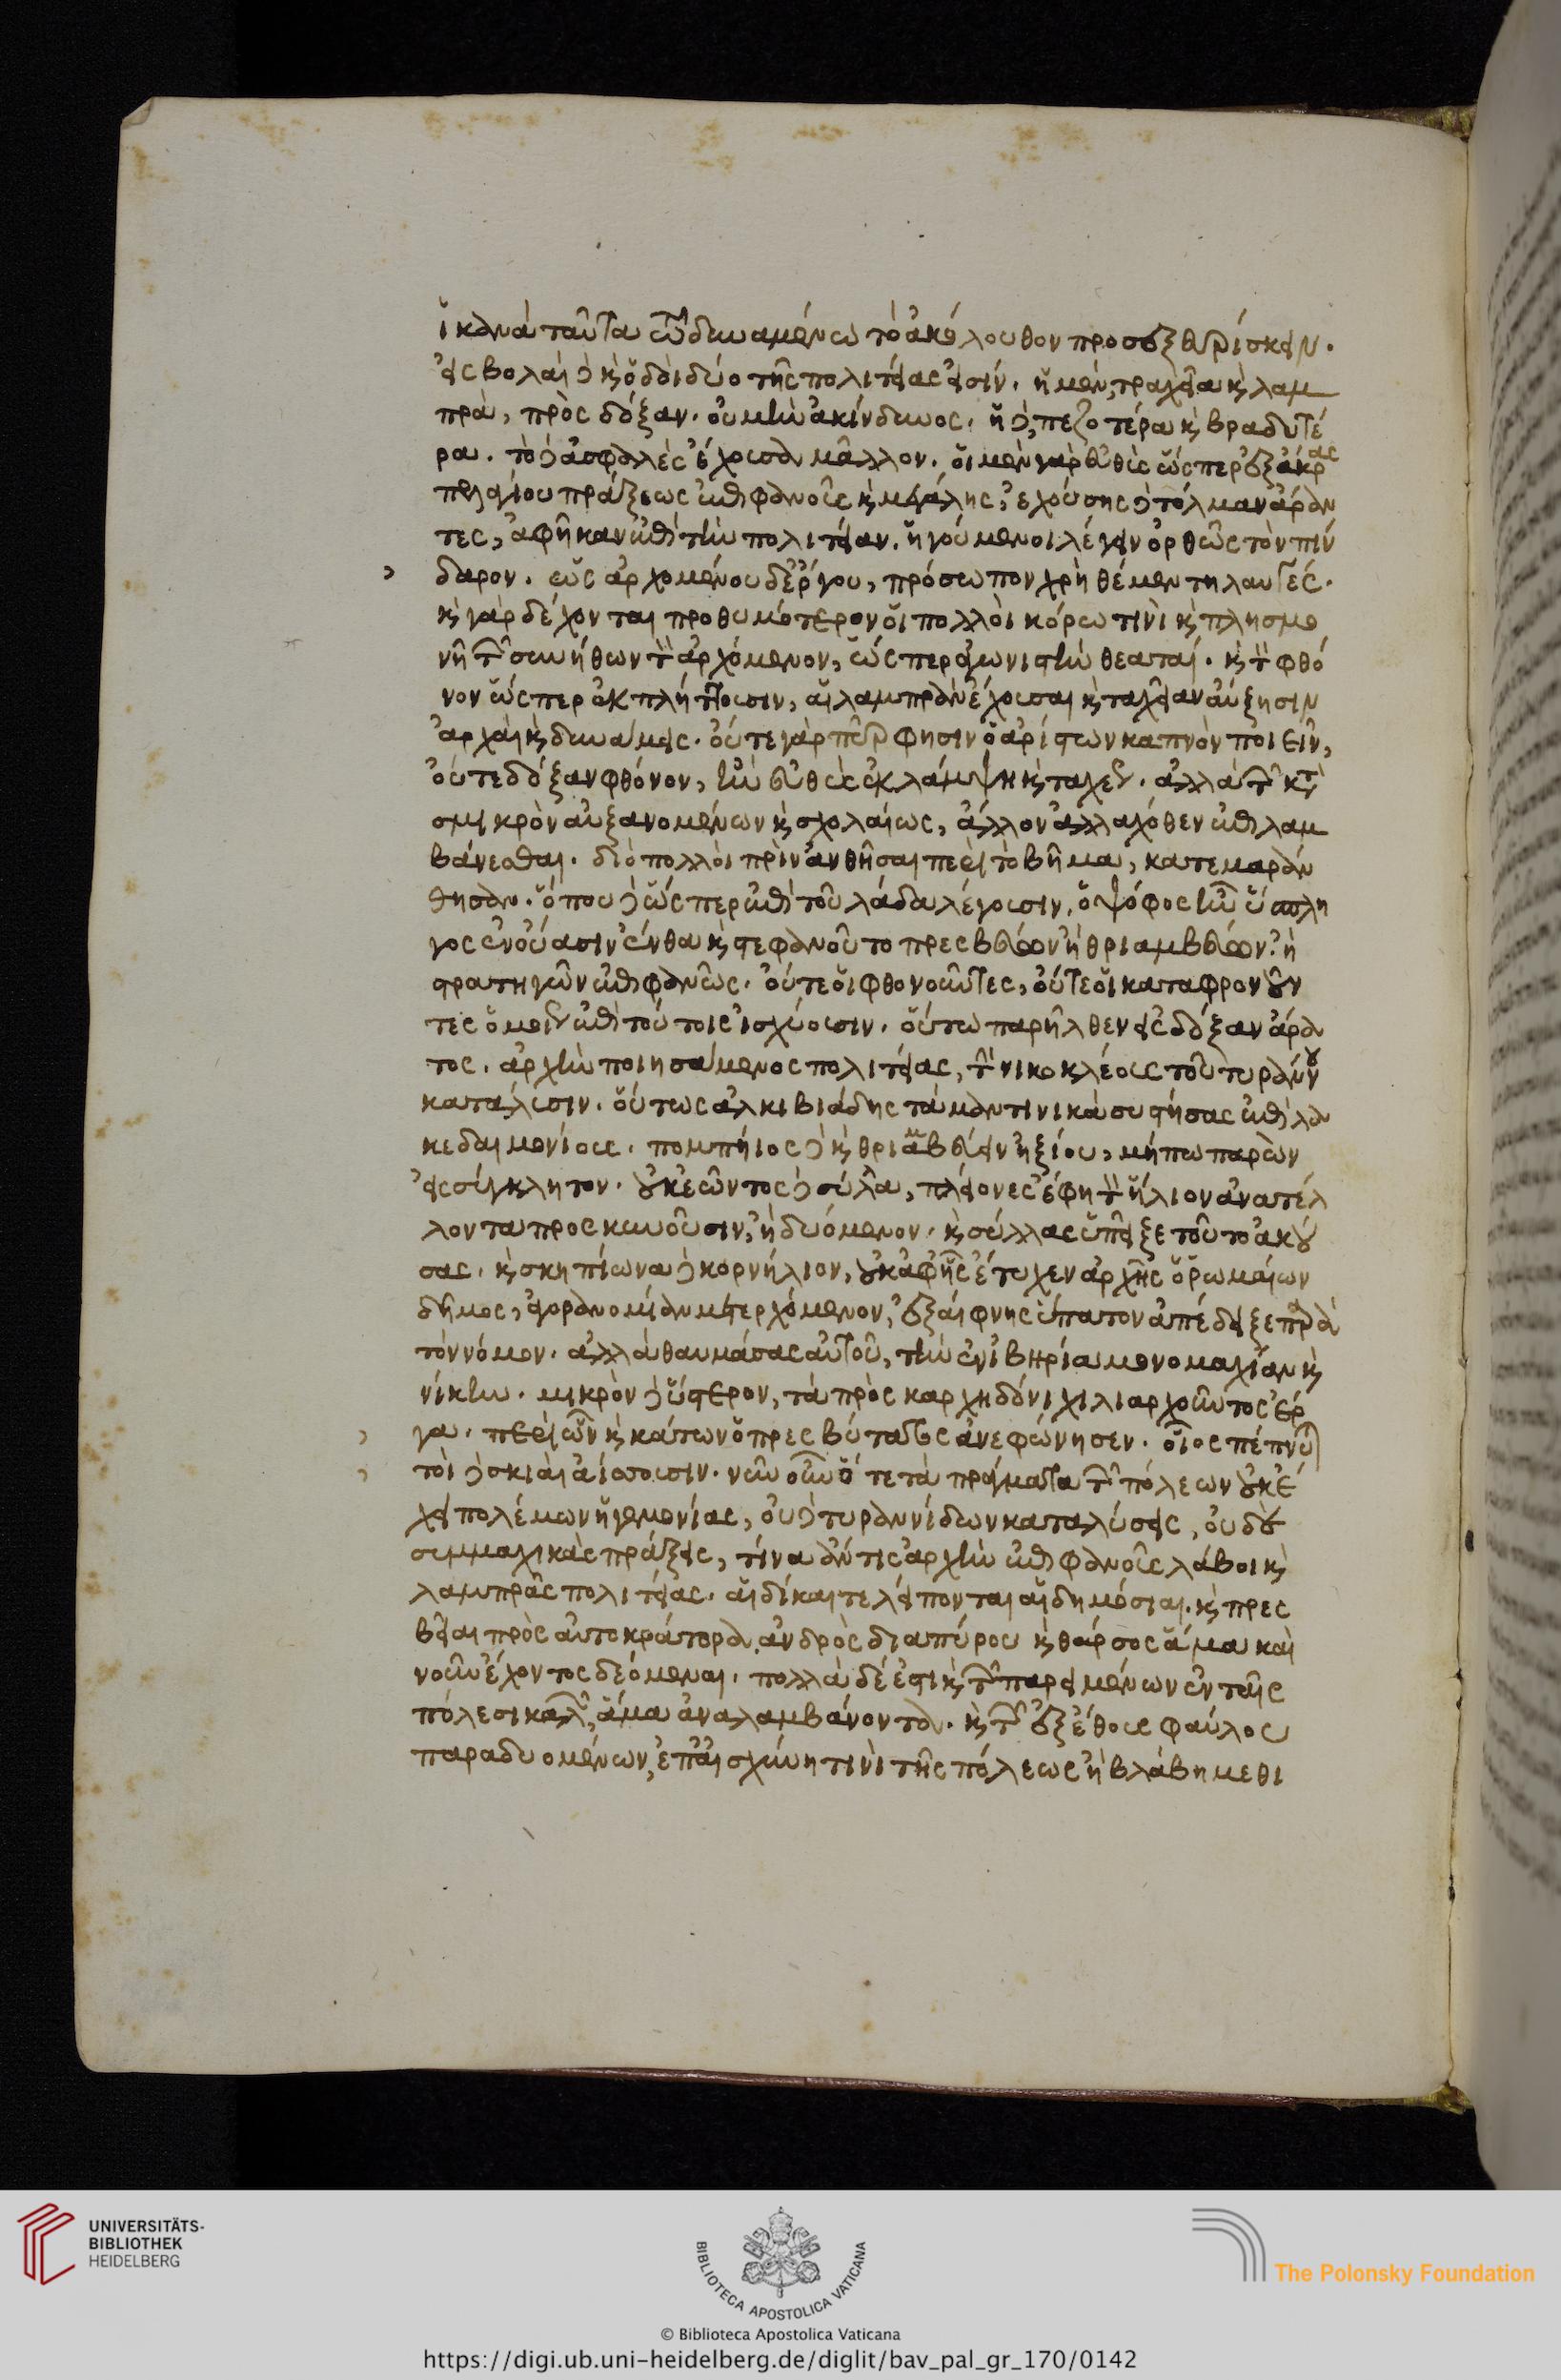 ἱκανὰ ταῦτα τῷ δυναμένῳ τὸ ἀκόλουθον προσεξευρίσκειν.
εἰσβολαὶ δὲ καὶ ὁδοὶ δύο τῆς πολιτείας εἰσίν. ἡ μὲν, ταχεῖα καὶ λαμ
πρὰ, πρὸς δόξαν. οὐ μὴν ἀκίνδυνος. ἡ δὲ, πεζοτέρα καὶ βραδυτέ
ρα. τὸ δὲ ἀσφαλὲς ἔχουσα μᾶλλον. οἱ μὲν γὰρ εὐθὺς ὥσπερ ἐξ ἄκρας
πελαγίου πράξεως ἐπιφανοῦς καὶ μεγάλης, ἐχούσης δὲ τόλμαν ἄραν
τες, ἀφῆκαν ἐπὶ τὴν πολιτείαν. ἡγούμενοι λέγειν ὀρθῶς τὸν πίν
δαρον. ὡς ἀρχομένου δ' ἔργου, πρόσωπον χρὴ θέμεν τηλαυγές.
καὶ γὰρ δέχονται προθυμότερον οἱ πολλοὶ κόρῳ τινὶ καὶ πλησμο
νῇ τῶν συνήθων τὸν ἀρχόμενον, ὥσπερ ἀγωνιστὴν θεαταί. καὶ τὸν φθό
νον ὥσπερ ἐκπλήττουσιν, αἱ λαμπρὰν ἔχουσαι καὶ ταχεῖαν αὔξησιν
ἀρχαὶ καὶ δυνάμεις. οὔτε γὰρ πῦρ φησιν ὁ ἀρίστων καπνὸν ποιεῖν,
οὔτε δόξαν φθόνον, ἢν εὐθὺς ἐκλάμψῃ καὶ ταχέως. ἀλλὰ τῶν κατὰ
σμικρὸν αὐξανομένων καὶ σχολαίως, ἄλλον ἀλλαχόθεν ἐπιλαμ
βάνεσθαι. διὸ πολλοὶ πρὶν ἀνθῆσαι περὶ τὸ βῆμα, κατεμαράν
θησαν. ὅπου δὲ ὥσπερ ἐπὶ τοῦ λάδα λέγουσιν, ὁ ψόφος ἦν ὕσπλη
γος ἐν οὔασιν ἔνθα καὶ στεφανοῦτο πρεσβεύων ἢ θριαμβεύων ἢ
στρατηγῶν ἐπιφανῶς. οὔτε οἱ φθονοῦντες, οὔτε οἱ καταφρονοῦν
τες ὁμοίως ἐπὶ τούτοις ἰσχύουσιν. οὕτω παρῆλθεν εἰς δόξαν ἄρα
τος. ἀρχὴν ποιησάμενος πολιτείας, τὴν νικοκλέους τοῦ τυράννου
κατάλυσιν. οὕτως ἀλκιβιάδης τὰ μαντινικὰ συστήσας ἐπὶ λα
κεδαιμονίους. πομπήιος δὲ καὶ θριαμβεύειν ἠξίου, μήπω παρὼν
εἰς σύγκλητον. οὐκ ἐῶντος δὲ σύλλα, πλείονες ἔφη τὸν ἥλιον ἀνατέλ
λοντα προσκυνοῦσιν, ἢ δυόμενον. καὶ σύλλας ὑπεῖξε τοῦτο ἀκού
σας. καὶ σκηπίωνα δὲ κορνήλιον, οὐκ ἀφ' ἧς ἔτυχεν ἀρχῆς ὁ ῥωμαίων
δῆμος, ἀγορανομίαν μετερχόμενον, ἐξαίφνης ὕπατον ἀπέδειξε παρὰ
τὸν νόμον. ἀλλὰ θαυμάσας αὐτοῦ, τὴν ἐν ἰβηρίᾳ μονομαχίαν καὶ
νίκην. μικρὸν δὲ ὕστερον, τὰ πρὸς καρχηδόνι χιλιαρχοῦντος ἔρ
γα. περὶ ὧν καὶ κάτων ὁ πρεσβύτατος ἀνεφώνησεν. οἶος πέπνυ
τοι δὲ σκιαὶ ἀίσσουσιν. νῦν οὖν ὅτε τὰ πράγματα τῶν πόλεων οὐκ ἔ
χει πολέμων ἡγεμονίας, οὐ δὲ τυραννίδων καταλύσεις, οὐδὲ
συμμαχικὰς πράξεις, τίνα ἄν τις ἀρχὴν ἐπιφανοῦς λάβοι καὶ
λαμπρᾶς πολιτείας. αἱ δίκαι τε λείπονται αἱ δημόσιαι. καὶ πρεσ
βεῖαι πρὸς αὐτοκράτορα ἀνδρὸς διαπύρου καὶ θάρσος ἅμα καὶ
νοῦν ἔχοντος δεόμεναι. πολλὰ δέ ἐστι καὶ τῶν παρειμένων ἐν ταῖς
πόλεσι καλῶν, ἅμα ἀναλαμβάνοντα. καὶ τῶν ἐξ ἔθους φαύλου
παραδυομένων, ἐπ' αἰσχύνῃ τινὶ τῆς πόλεως ἢ βλάβῃ μεθι
UNIVERSITÄTS-
BIBLIOTHEK
HEIDELBERG
BIBLIOTECA APOSTOLICA VATICANA
The Polonsky Foundation
© Biblioteca Apostolica Vaticana
https://digi.ub.uni-heidelberg.de/diglit/bav_pal_gr_170/0142